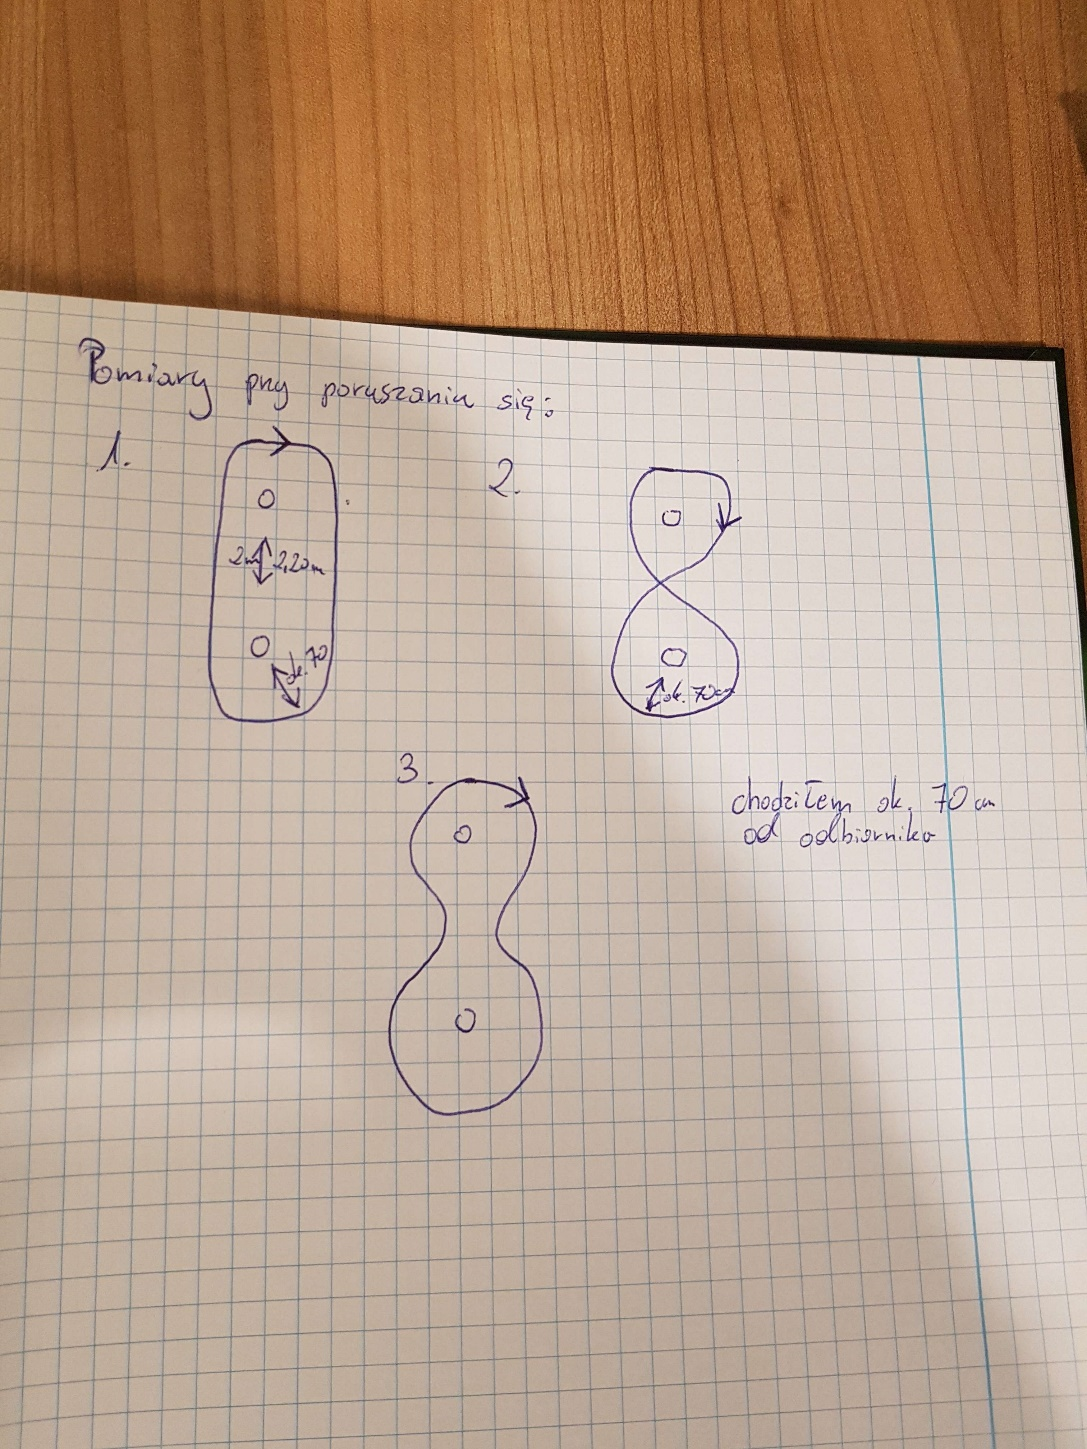 Pomiary przy poruszaniu się:
1.
2m 2,20m
ok. 70
2.
ok. 70cm
3.
chodziłem ok. 70 cm
od odbiornika